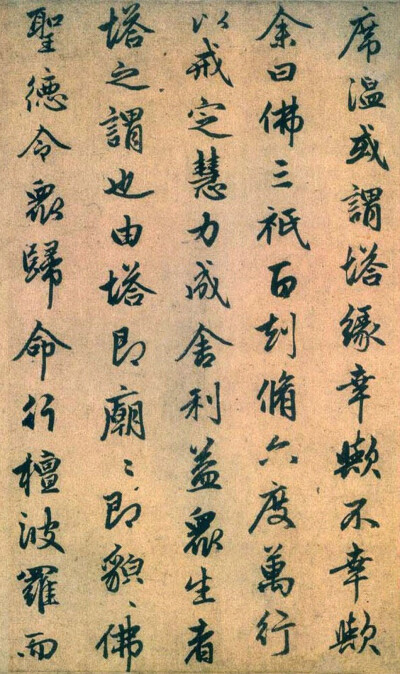 席温或謂塔緣幸歟不幸歟
余曰佛三祇百刧脩六度萬行
以戒定慧力成舍利益眾生者
塔之謂也由塔即廟〻即貌〻佛
聖德令眾歸命行檀波羅而